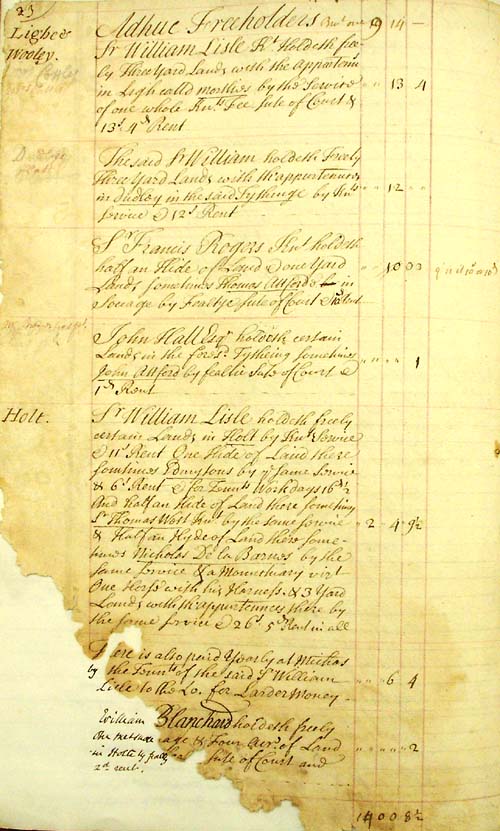 23
Adhuc Freeholders 9 14 —
Lighee
Wooley.
Sr William Lisle Kt Holdeth free-
ly Three Yard Lands with the Apportenncs
in Ligh called morthies by the Service 13 4
of one whole Knts Fee sute of Court &
13s 4d Rent
The said Sr William holdeth Freely
Three Yard Lands with th'appurtennces
in Dudley in the said Tythinge by Knts 12
service & 12s Rent
Sr Francis Rogers Knt holdeth
half an Hide of Land & one Yard 10 03
Lands sometimes Thomas Attford's in
Socage by Fealtye sute of Court
John Hall Esqr holdeth certain
Lands in the foresd Tytheing sometimes
John Attford by fealtie Sute of Court & 1
1d Rent
Holt.
Sr William Lisle holdeth freely
certain Lands in Holt by Knts Service
& 11s Rent One Hide of Land there
somtimes Edmysons by ye same Service
& 6s Rent & for Tennts Workdays 16d ½
And half an Hide of Land there sometimes
Sr Thomas West Knt by the same service 2 4 9½
& Half an Hyde of Land there some-
times Nicholas De la Barnes by the
same Service & a Momentuary vizt
One Horse with his Harness & 3 Yard
Lands with th'appurtences there by
the same service & 26s 5d Rent in all
There is also paid Yearly at Michas
by the Tennts of the said Sr William 6 4
Lisle to the Lo. for Larder Money
William Blanchard holdeth freely
one messuage & Four Acrs of Land 2
in Holte by fealty sute of Court and
2d rent.
14 00 8½